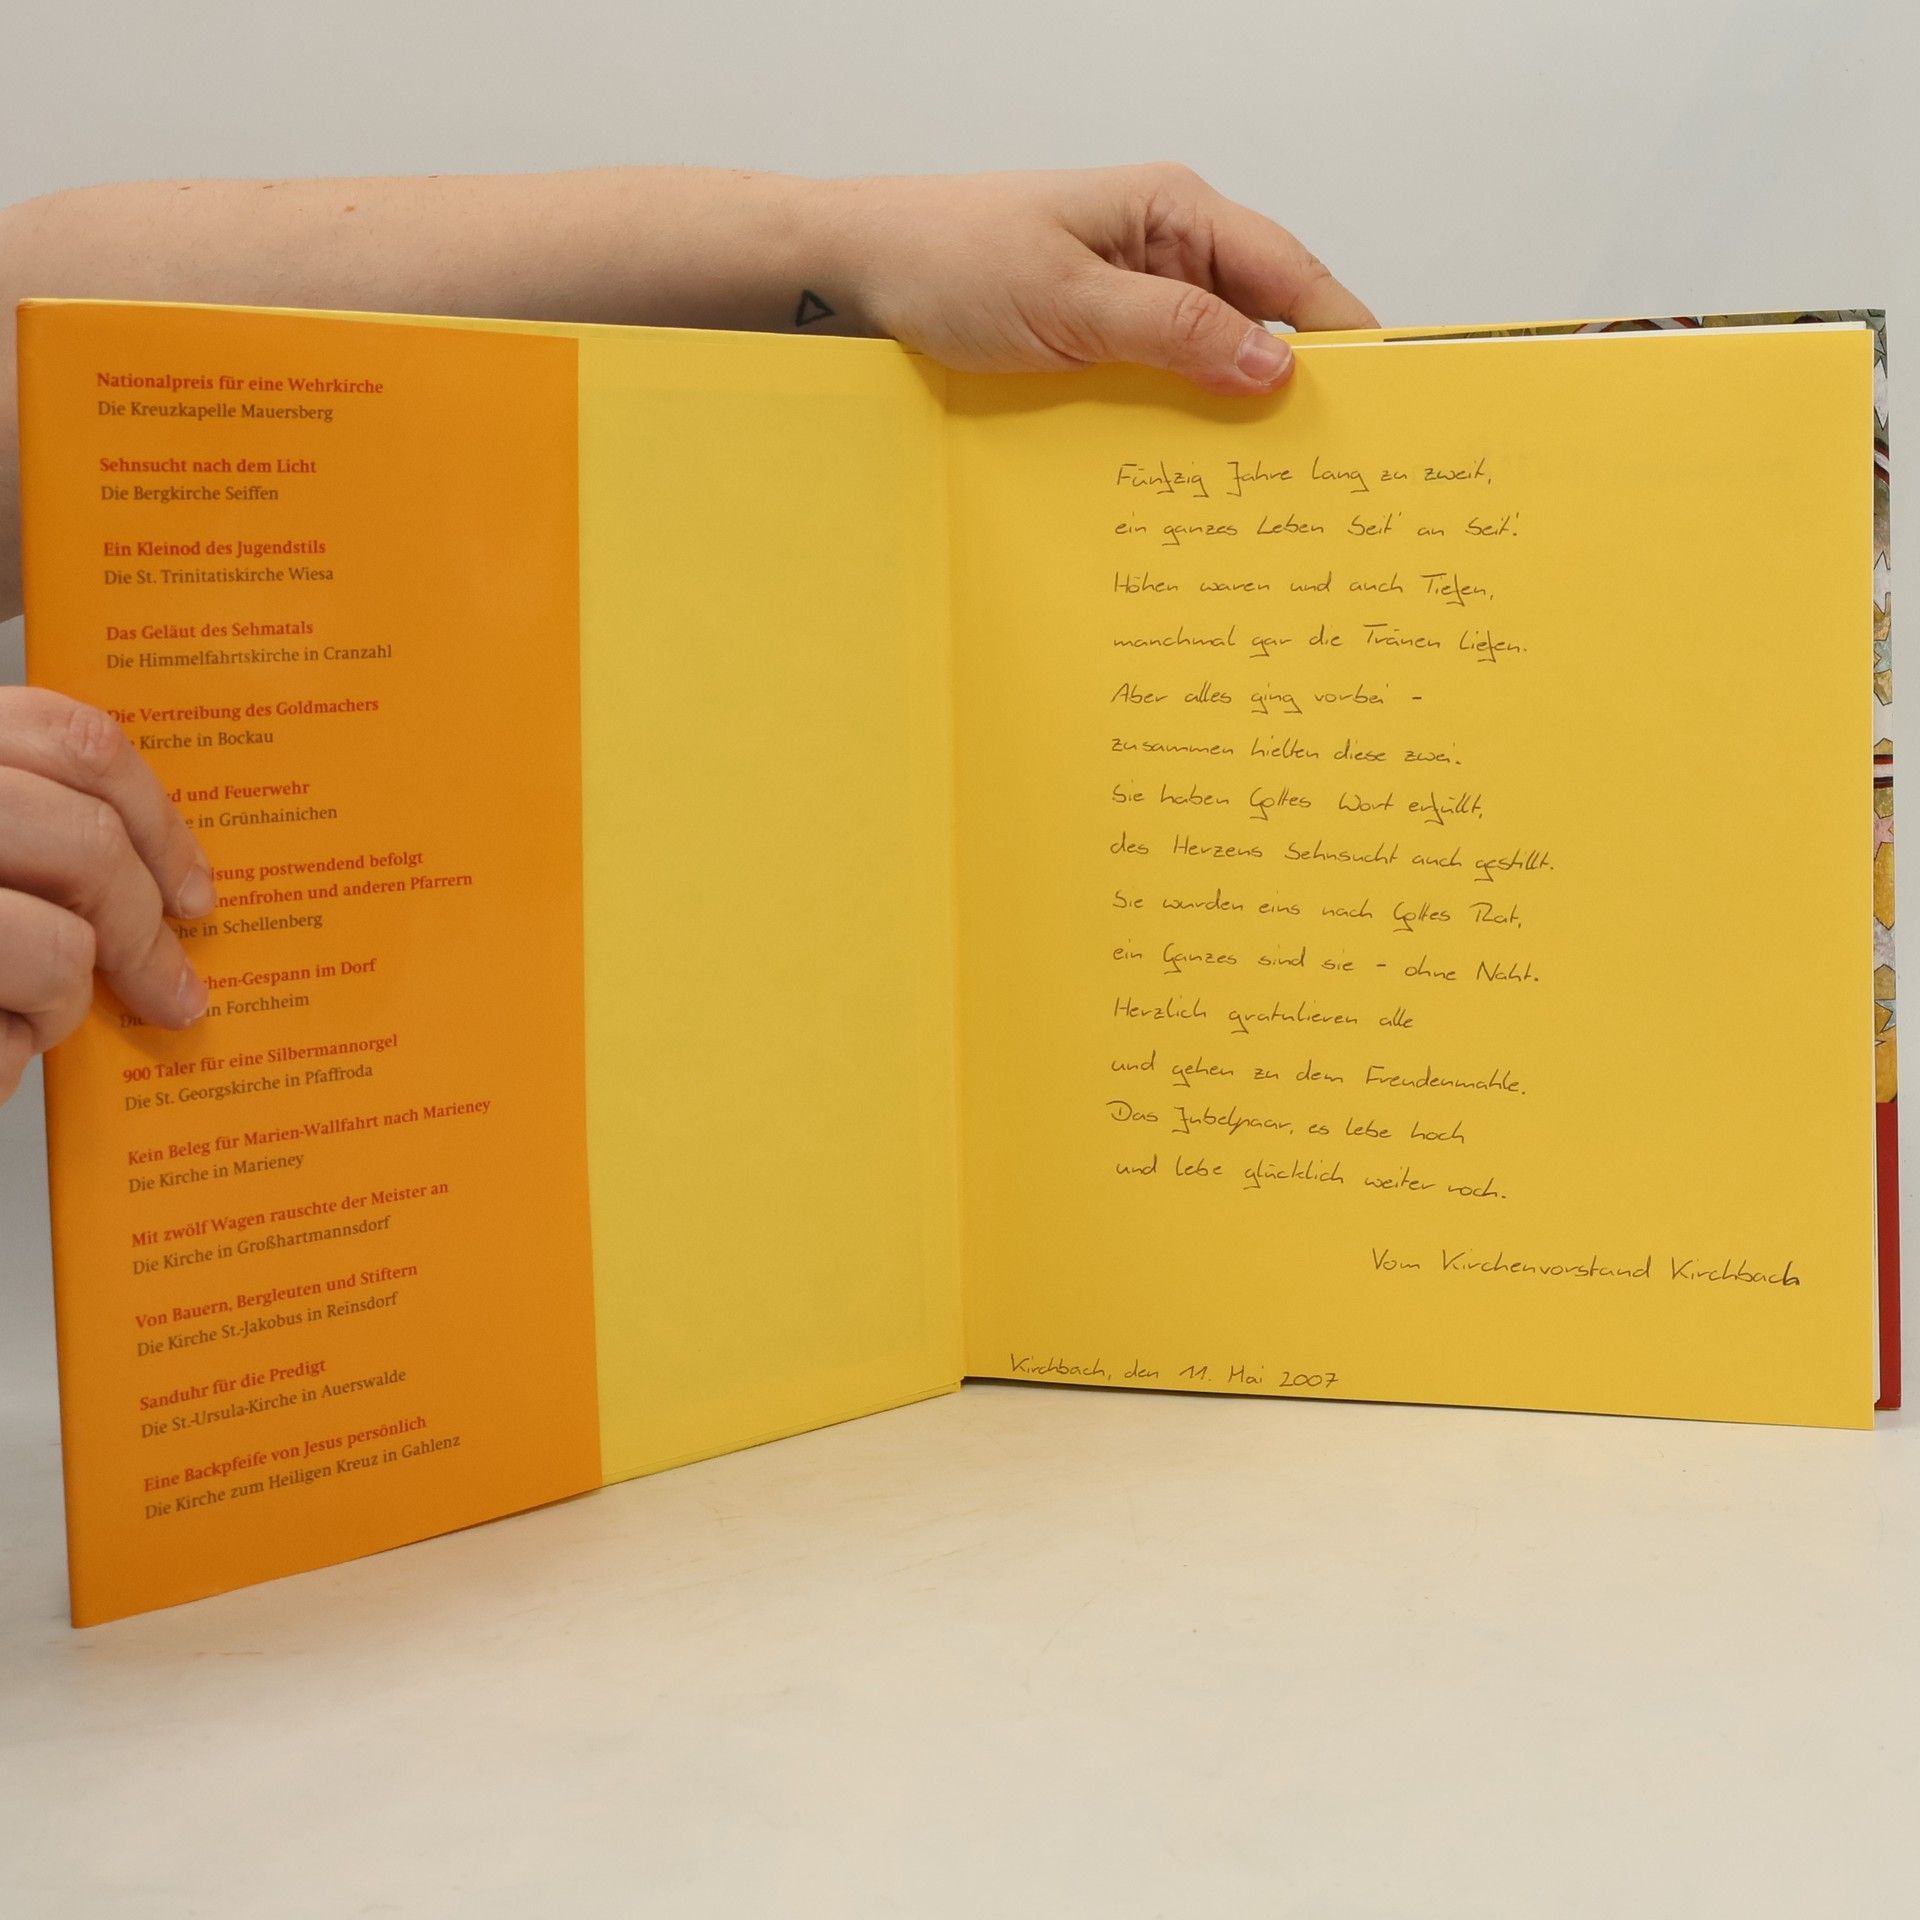 Nationalpreis für eine Wehrkirche
Die Kreuzkapelle Mauersberg
Sehnsucht nach dem Licht
Die Bergkirche Seiffen
Ein Kleinod des Jugendstils
Die St. Trinitatiskirche Wiesa
Das Geläut des Sehmatals
Die Himmelfahrtskirche in Cranzahl
Die Vertreibung des Goldmachers
Kirche in Bockau
und Feuerwehr
in Grünhainichen
postwendend befolgt
und anderen Pfarrern
in Schellenberg
im Dorf
in Forchheim
900 Taler für eine Silbermannorgel
Die St. Georgskirche in Pfaffroda
Kein Beleg für Marien-Wallfahrt nach Marieney
Die Kirche in Marieney
Mit zwölf Wagen rauschte der Meister an
Die Kirche in Großhartmannsdorf
Von Bauern, Bergleuten und Stiftern
Die Kirche St.-Jakobus in Reinsdorf
Sanduhr für die Predigt
Die St.-Ursula-Kirche in Auerswalde
Eine Backpfeife von Jesus persönlich
Die Kirche zum Heiligen Kreuz in Gahlenz
Fünfzig Jahre lang zu zweit,
ein ganzes Leben Seit' an Seit'.
Höhen waren und auch Tiefen,
manchmal gar die Tränen liefen.
Aber alles ging vorbei –
zusammen hielten diese zwei.
Sie haben Gottes Wort erfüllt,
des Herzens Sehnsucht auch gestillt.
Sie wurden eins nach Gottes Rat,
ein Ganzes sind sie – ohne Naht.
Herzlich gratulieren alle
und gehen zu dem Freudenmahle.
Das Jubelpaar, es lebe hoch
und lebe glücklich weiter noch.
Vom Kirchenvorstand Kirchbach
Kirchbach, den 11. Mai 2007